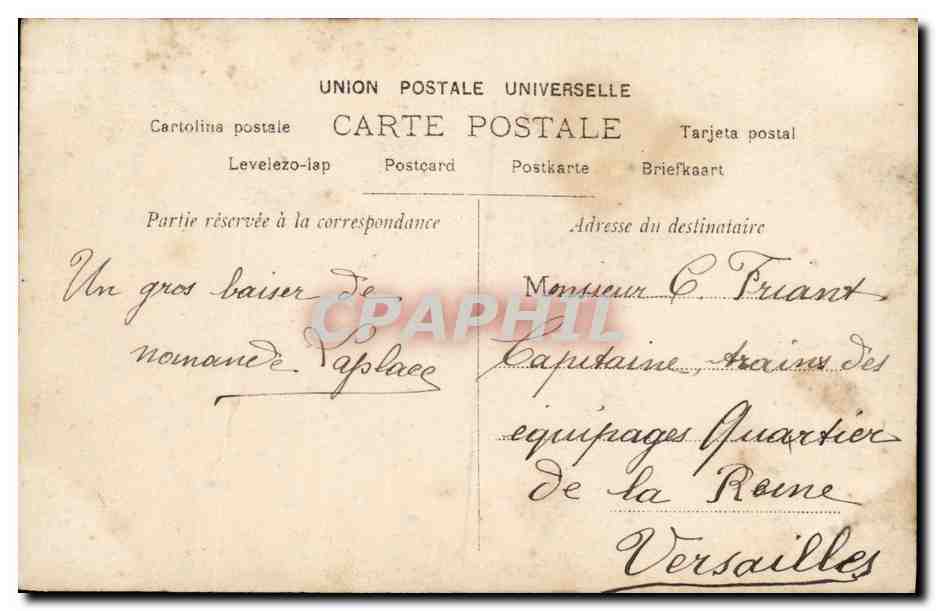 UNION POSTALE UNIVERSELLE
Cartolina postale CARTE POSTALE Tarjeta postal
Levelezo-lap Postcard Postkarte Briefkaart
Partie réservée à la correspondance
Un gros baiser de
nomande Laplace
Adresse du destinataire
Monsieur C. Friant
Capitaine, trains des
équipages Quartier
de la Reine
Versailles
CPAPHIL